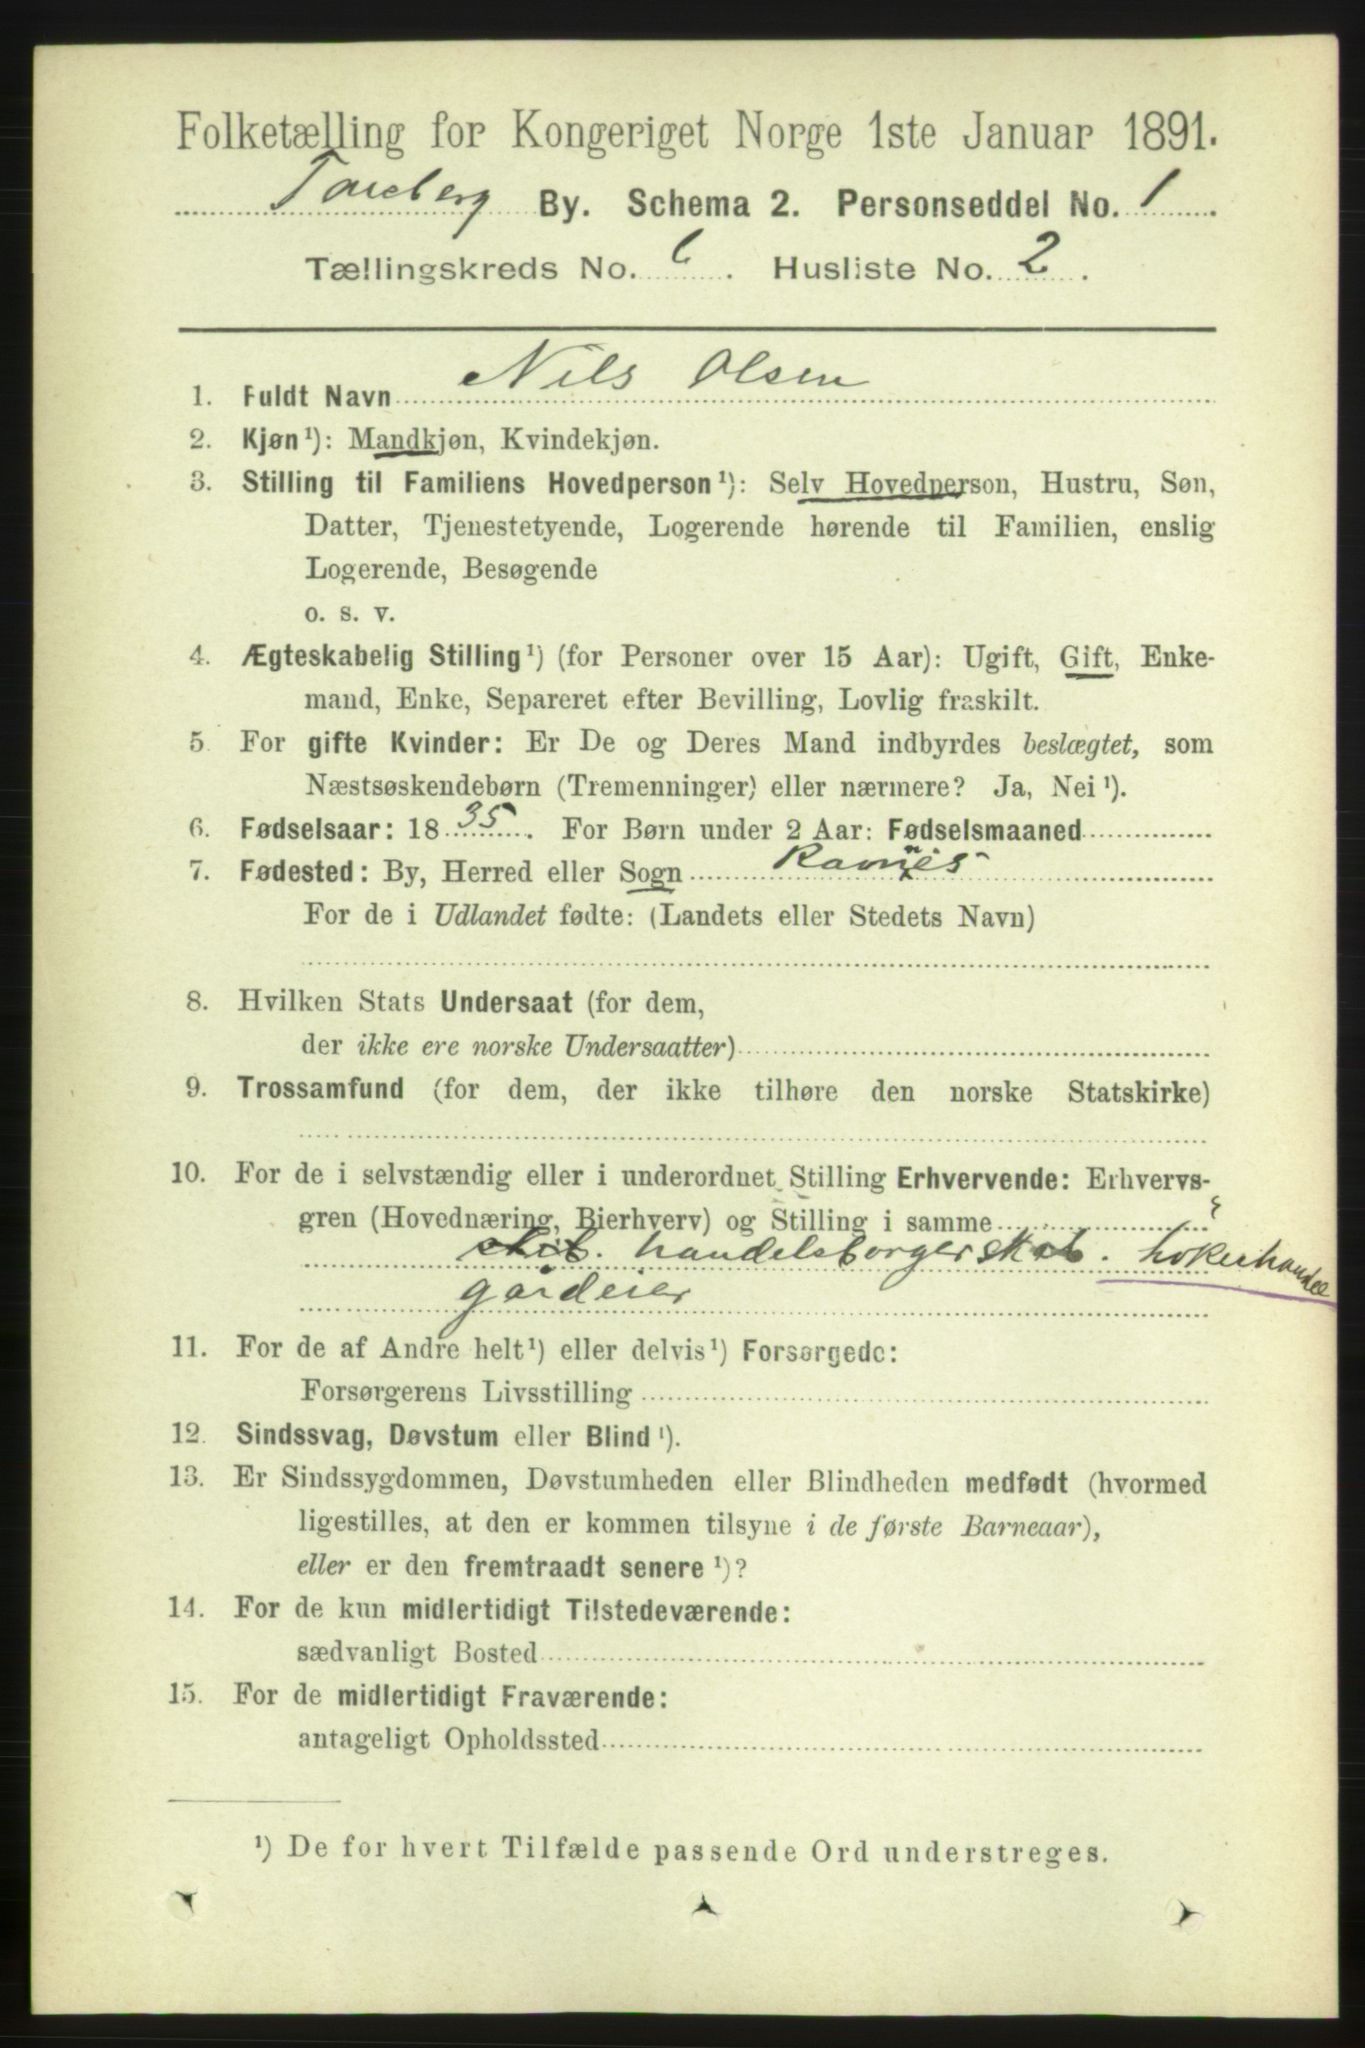 Folketælling for Kongeriget Norge 1ste Januar 1891.
By. Schema 2. Personseddel No. 1
Tællingskreds No. 6. Husliste No. 2.
1. Fuldt Navn Nils Olsen
2. Kjøn¹): Mandkjøn, Kvindekjøn.
3. Stilling til Familiens Hovedperson¹): Selv Hovedperson, Hustru, Søn,
Datter, Tjenestetyende, Logerende hørende til Familien, enslig
Logerende, Besøgende
o. s. v.
4. Ægteskabelig Stilling¹) (for Personer over 15 Aar): Ugift, Gift, Enke-
mand, Enke, Separeret efter Bevilling, Lovlig fraskilt.
5. For gifte Kvinder: Er De og Deres Mand indbyrdes beslægtet, som
Næstsøskendebørn (Tremenninger) eller nærmere? Ja, Nei¹).
6. Fødselsaar: 1835. For Børn under 2 Aar: Fødselsmaaned
7. Fødested: By, Herred eller Sogn Ramnes
For de i Udlandet fødte: (Landets eller Stedets Navn)
8. Hvilken Stats Undersaat (for dem,
der ikke ere norske Undersaatter)
9. Trossamfund (for dem, der ikke tilhøre den norske Statskirke)
10. For de i selvstændig eller i underordnet Stilling Erhvervende: Erhvervs-
gren (Hovednæring, Bierhverv) og Stilling i samme
handelsborgerskab. hökerhandel
gårdeier
11. For de af Andre helt¹) eller delvis¹) Forsørgede:
Forsørgerens Livsstilling
12. Sindssvag, Døvstum eller Blind¹).
13. Er Sindssygdommen, Døvstumheden eller Blindheden medfødt (hvormed
ligestilles, at den er kommen tilsyne i de første Barneaar),
eller er den fremtraadt senere¹)?
14. For de kun midlertidigt Tilstedeværende:
sædvanligt Bosted
15. For de midlertidigt Fraværende:
antageligt Opholdssted
¹) De for hvert Tilfælde passende Ord understreges.